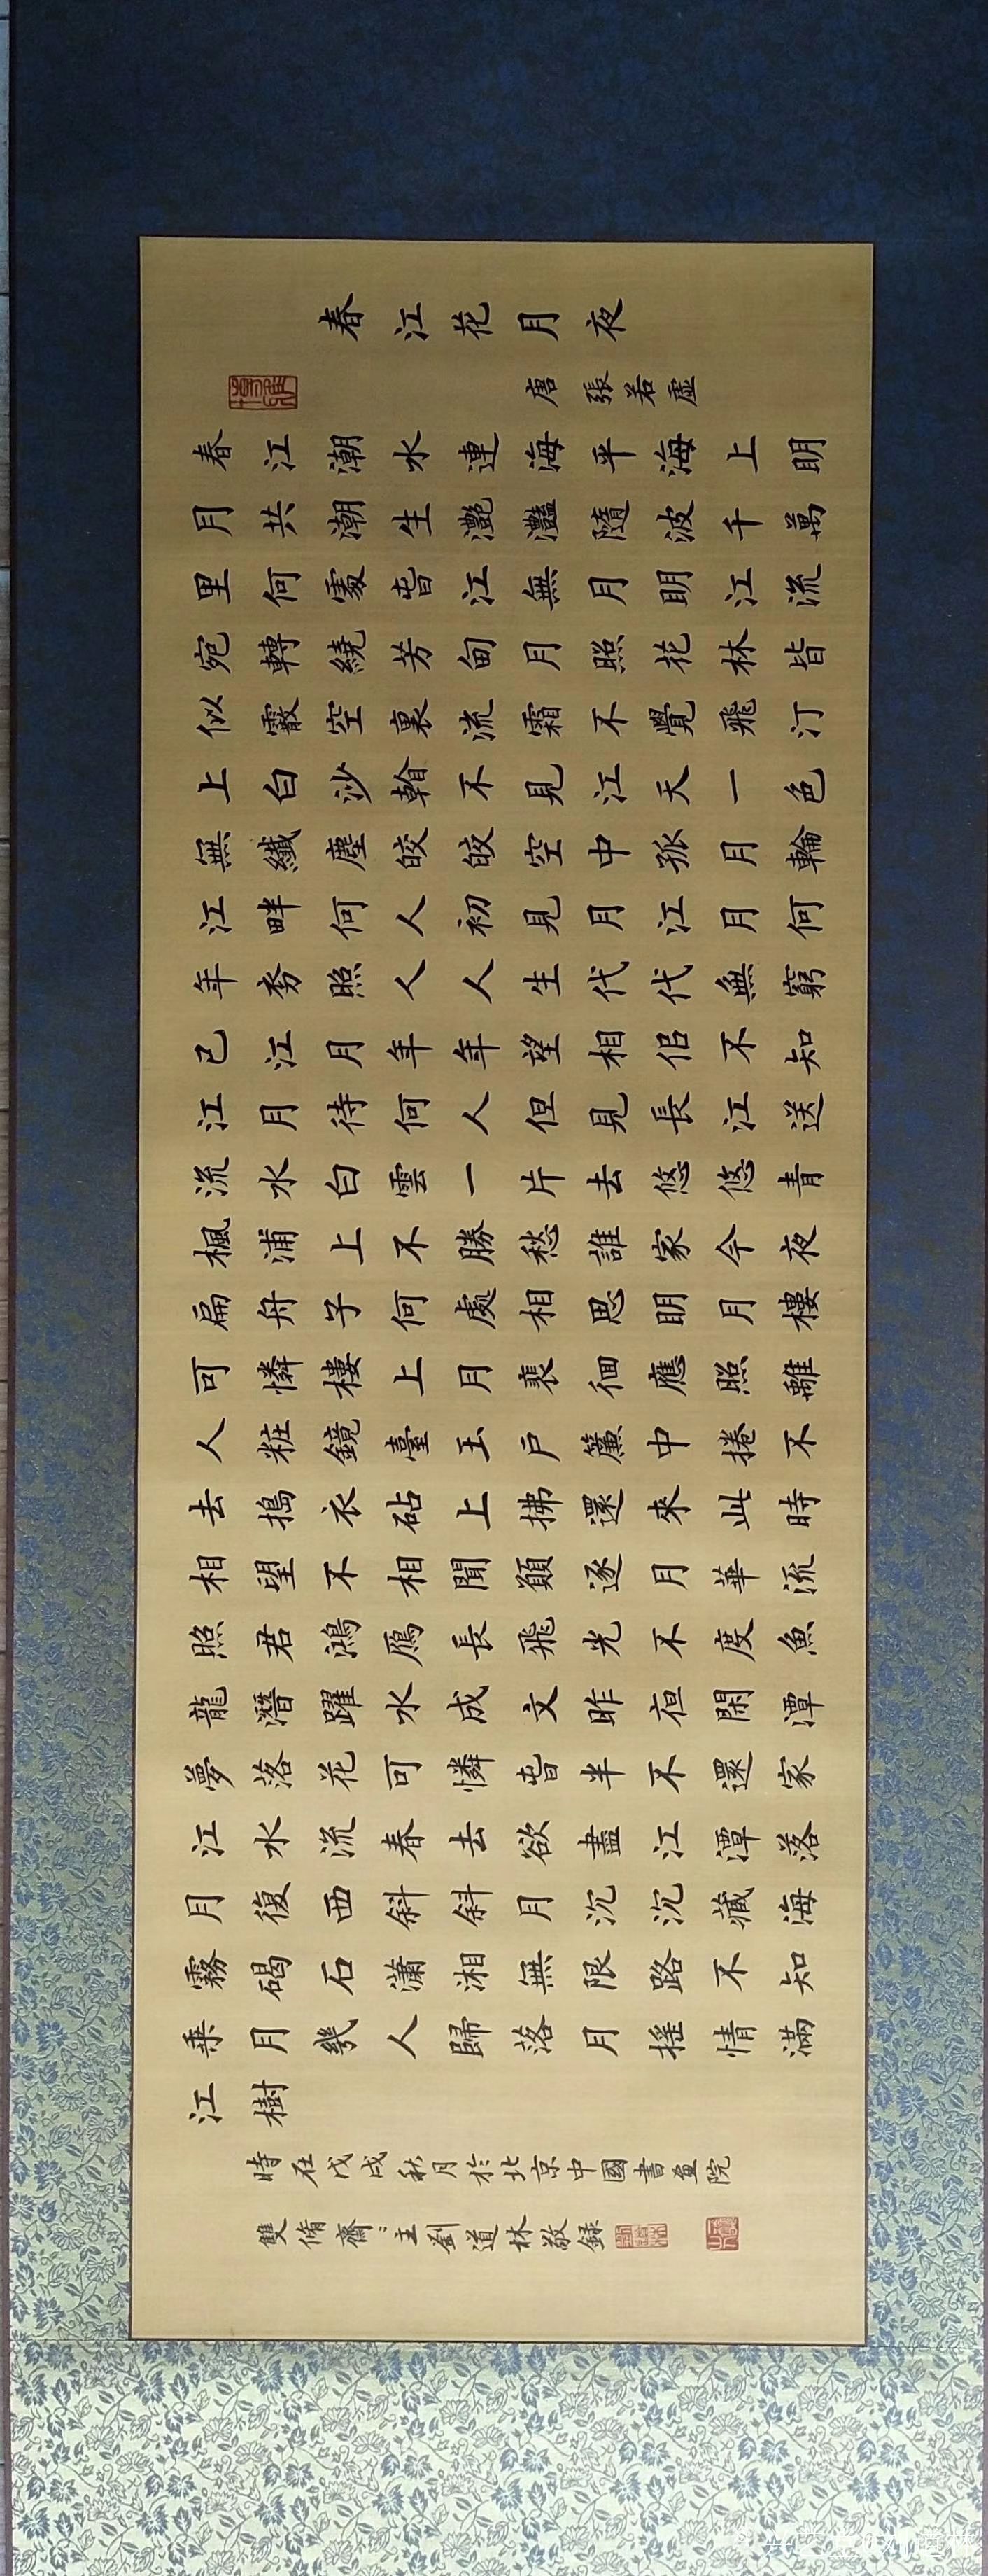 春江花月夜
唐張若虛
春江潮水連海平海上明
月共潮生灧灩隨波千萬
里何處旾江無月明江流
宛轉繞芳甸月照花林皆
似霰空裏流霜不覺飛汀
上白沙翰不見江天一色
無纖塵皎皎空中孤月輪
江畔何人初見月江月何
年初照人人生代代無窮
已江月年年望相佀不知
江月待何人但見長江送
流水白雲一片去悠悠青
楓浦上不勝愁誰家今夜
扁舟子何處相思明月樓
可憐樓上月裴徊應照離
人粧鏡臺玉戶簾中捲不
去搗衣砧上拂還來此時
相望不相聞願逐月華流
照君鴻鴈長飛光不度魚
龍潛躍水成文昨夜閑潭
夢落花可憐旾半不還家
江水流春去欲盡江潭落
月復西斜斜月沉沉藏海
霧碣石瀟湘無限路不知
乗月幾人歸落月搖情滿
江樹
時在戊戌秋月於北京中國書畫院
雙脩齋主劉道林敬録